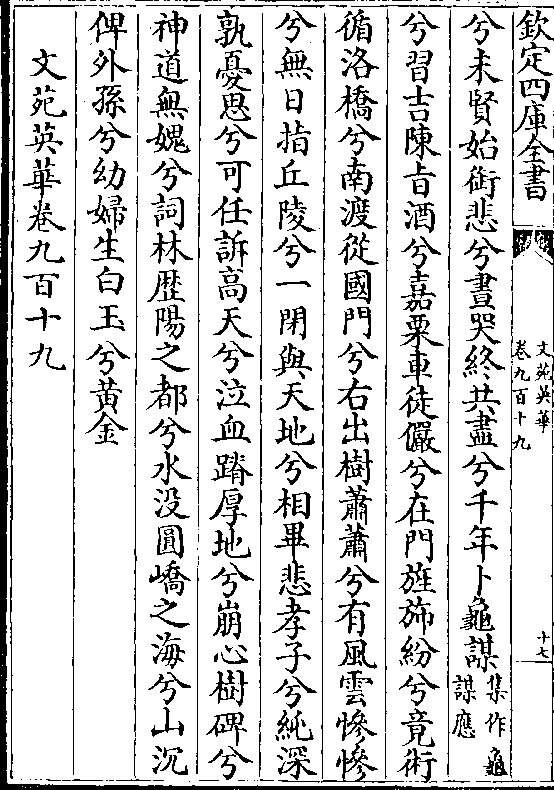 欽定四庫全書
文苑英華
卷九百十九
十七
兮未賢始銜悲兮晝哭終共盡兮千年卜龜謀集作龜謀應
兮習吉陳旨酒兮嘉栗車徒儼兮在門旌斾紛兮竟術
循洛橋兮南渡從國門兮右出樹蕭蕭兮有風雲慘慘
兮無日指丘陵兮一閉與天地兮相畢悲孝子兮純深
孰憂思兮可任訴高天兮泣血蹐厚地兮崩心樹碑兮
神道無媿兮詞林歴陽之都兮水没圓嶠之海兮山沉
俾外孫兮幼婦生白玉兮黃金
文苑英華卷九百十九